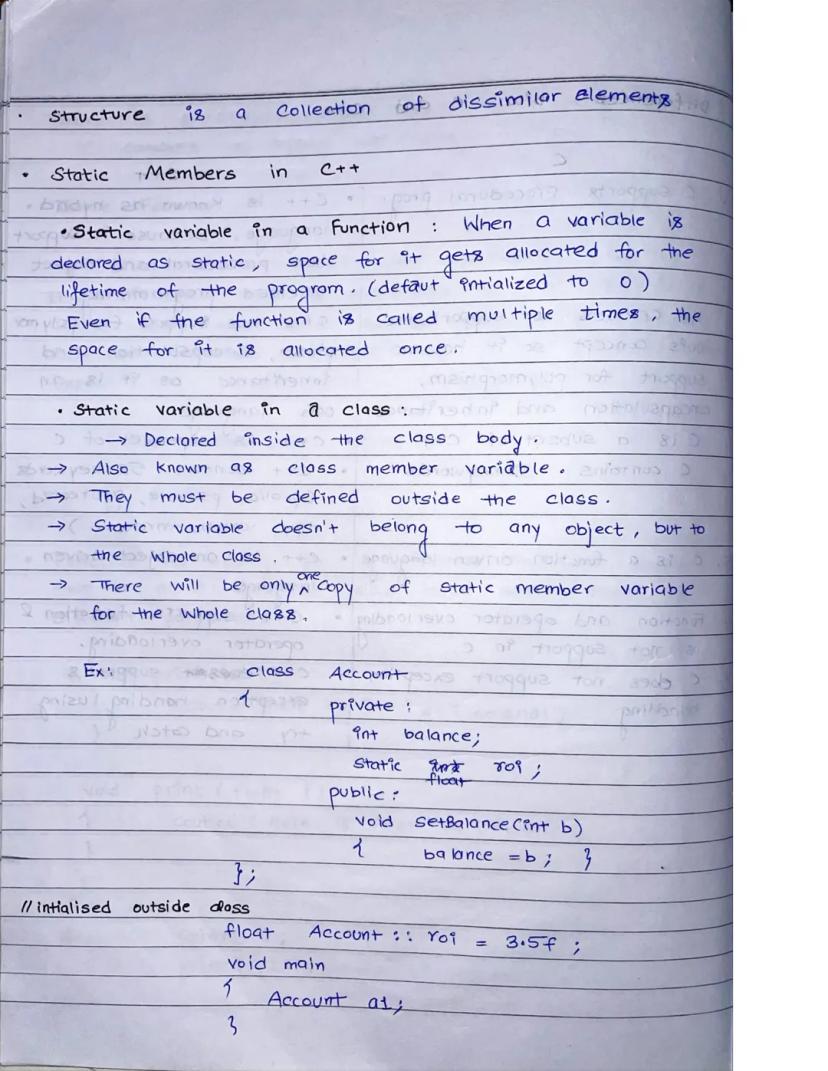 • Structure is a Collection of dissimilar elements
• Static Members in C++
• Static variable in a Function : When a variable is
declared as static, space for it gets allocated for the
lifetime of the program. (defaut intialized to 0)
Even if the function is called multiple times, the
space for it is allocated once.
• Static variable in a class :
→ Declared inside the class body.
→ Also known as class member variable.
→ They must be defined outside the class.
→ Static variable doesn't belong to any object, but to
the whole class.
→ There will be only one copy of static member variable
for the whole class.
Ex: class Account
{ private :
int balance;
static int float roi ;
public :
void setBalance(int b)
{ balance = b ; }
};
// intialised outside class
float Account :: roi = 3.5f ;
void main
{ Account a1;
}